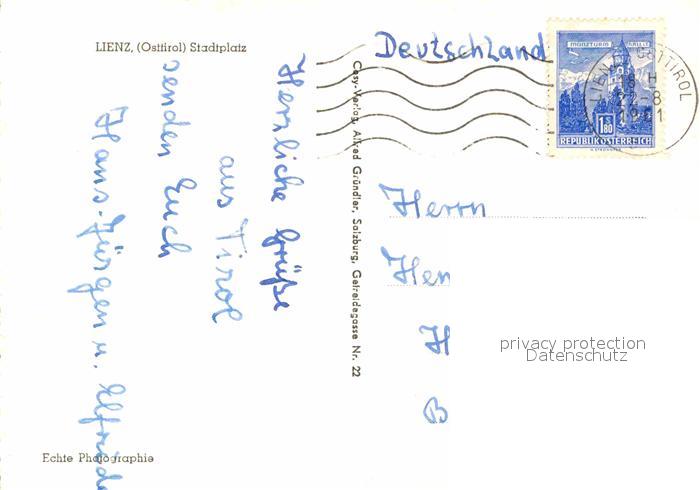 LIENZ, (Osttirol) Stadtplatz
Deutschland
MÜNZTURM HALL I. T.
1.80
REPUBLIK ÖSTERREICH
LIENZ OSTTIROL
22-8
Herzliche Grüße
aus Tirol
senden Euch
Hans-Jürgen u. Elfriede
Cosy-Verlag, Alfred Gründler, Salzburg, Getreidegasse Nr. 22
Herrn
Hen
H
B
privacy protection
Datenschutz
Echte Photographie